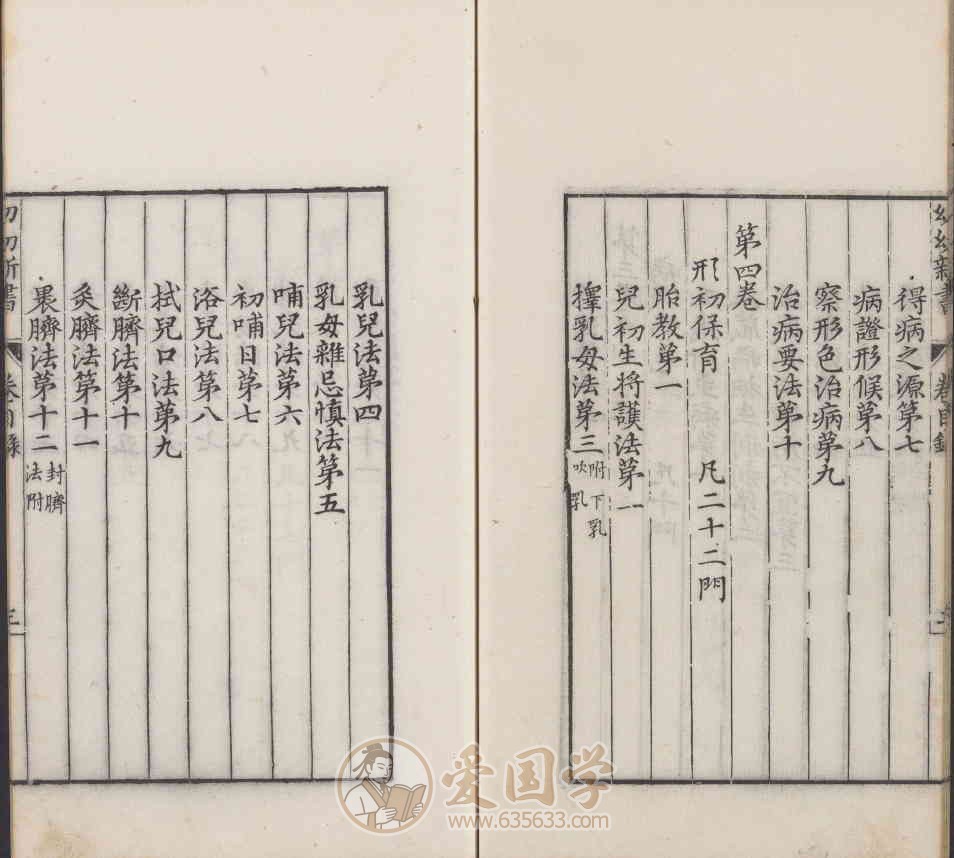 幼幼新書 卷目錄 二
得病之源第七
病證形候第八
察形色治病第九
治病要法第十
第四卷
形初保育 凡二十二門
胎教第一
兒初生将護法第一
擇乳母法第三 附下乳 吹乳
乳兒法第四
乳母雜忌慎法第五
哺兒法第六
初哺日第七
浴兒法第八
拭兒口法第九
斷臍法第十
灸臍法第十一
裹臍法第十二 封臍 法附
幼幼新書 卷目錄 三
爱国学
www.635633.com